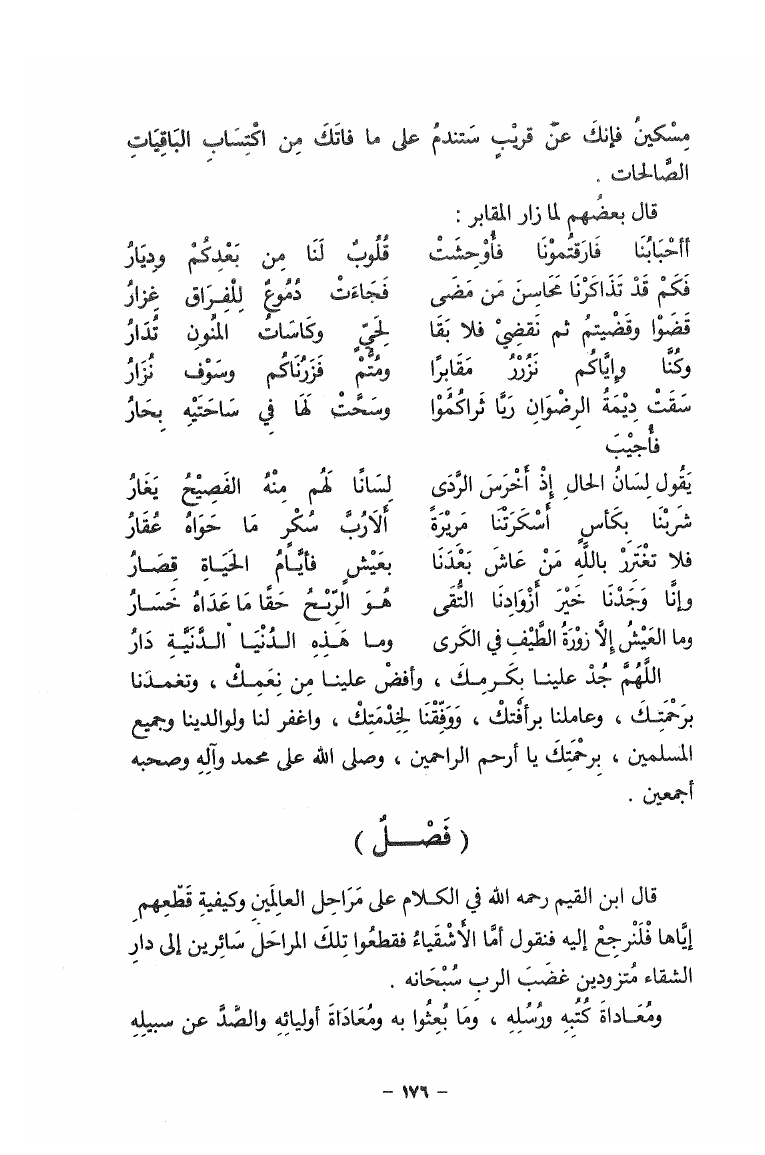 مِسْكينُ فإنكَ عنّ قريْبٍ سَتندمُ على ما فاتَكَ مِن اكْتِسَابِ البَاقيَاتِ
الصَّالحات .
قال بعضُهم لما زار المقابر :
أأحْبَابُنَا فَارَقتُمونْا فأُوْحِشَتْ قُلُوبٌ لَنَا مِن بَعْدِكُمْ ودِيَارُ
فَكَمْ قَدْ تَذَاكَرْنَا مَحَاسِنَ مَن مَضَى فَجَاءَتْ دُمُوعٌ لِلْفِرَاق غِزارُ
قَضَوْا وقَضْيتمُ ثم نَقضِيْ فلا بَقَا لِحَيٍّ وكَاسَاتُ المنُونِ تُدَارُ
وكُنَّا وإيَّاكُم نَزُرْرُ مَقَابرًا ومُتُّمْ فَزَرْنَاكُم وسَوْف نُزَارُ
سَقَتْ دِيْمَةُ الرِضْوَانِ رَبًّا ثَراكُمُوْا وسَحَّتْ لَهَا فِي سَاحَتيْهِ بِحَارُ
فأُجيْبَ
يَقُول لِسَانُ الحالِ إذْ أَخْرَسَ الرَّدَى لِسَانًا لَهُم مِنْهُ الفَصِيْحُ يَغَارُ
شَرِبْنَا بِكَأسٍ أَسْكَرَتْنَا مَرِيْرَةً أَلَارُبَّ سُكْرٍ مَا حَوَاهُ عُقَارُ
فلا تغْتَرَرْ باللّهِ مَنْ عَاشَ بَعْدَنَا بعَيْشٍ فأيَّامُ الحَيَاةِ قِصَارُ
وإنَّا وَجَدْنَا خَيْرَ أَزْوَادِنَا التُّقَى هُوَ الرِّبْحُ حَقًّا مَا عَدَاهُ خَسَارُ
وما العَيْشُ إلَّا زوْرَةُ الطَّيْفِ في الكَرى وما هَذِهِ الدُنْيَا الدَّنِيَّةِ دَارُ
اللَّهُمَّ جُدْ علينا بِكَرمِكَ ، وأفضْ علينا مِن نِعَمِكْ ، وتغمدَنا
برَحْمَتِكَ ، وعاملنا برأفتكْ ، وَوَفِّقْنَا لِخِدْمَتِكْ ، واغفر لنا ولوالدينا وجميع
المسلمين ، بِرحْمَتِكَ يا أرحم الراحمين ، وصلى الله على محمد وآلِهِ وصحبه
أجمعين .
( فَصْلٌ )
قال ابن القيم رحمه الله في الكلام على مَرَاحِل العالَمَيِن وكيفيةِ قَطّعِهم
إيَّاها فَلْنَرجِعْ إليه فنقول أمَّا الأَشْقياءُ فقطعُوا تِلكَ المراحَل سَائرين إلى دارِ
الشقاء مُتزودين غضَبَ الرب سُبْحَانه .
ومُعَاداةَ كُتُبِهِ ورُسُلِهِ ، وَمَا بُعِثُوا به ومُعَادَاةَ أوليائِهِ والصَّدَّ عن سبيلِهِ
- ١٧٦ -